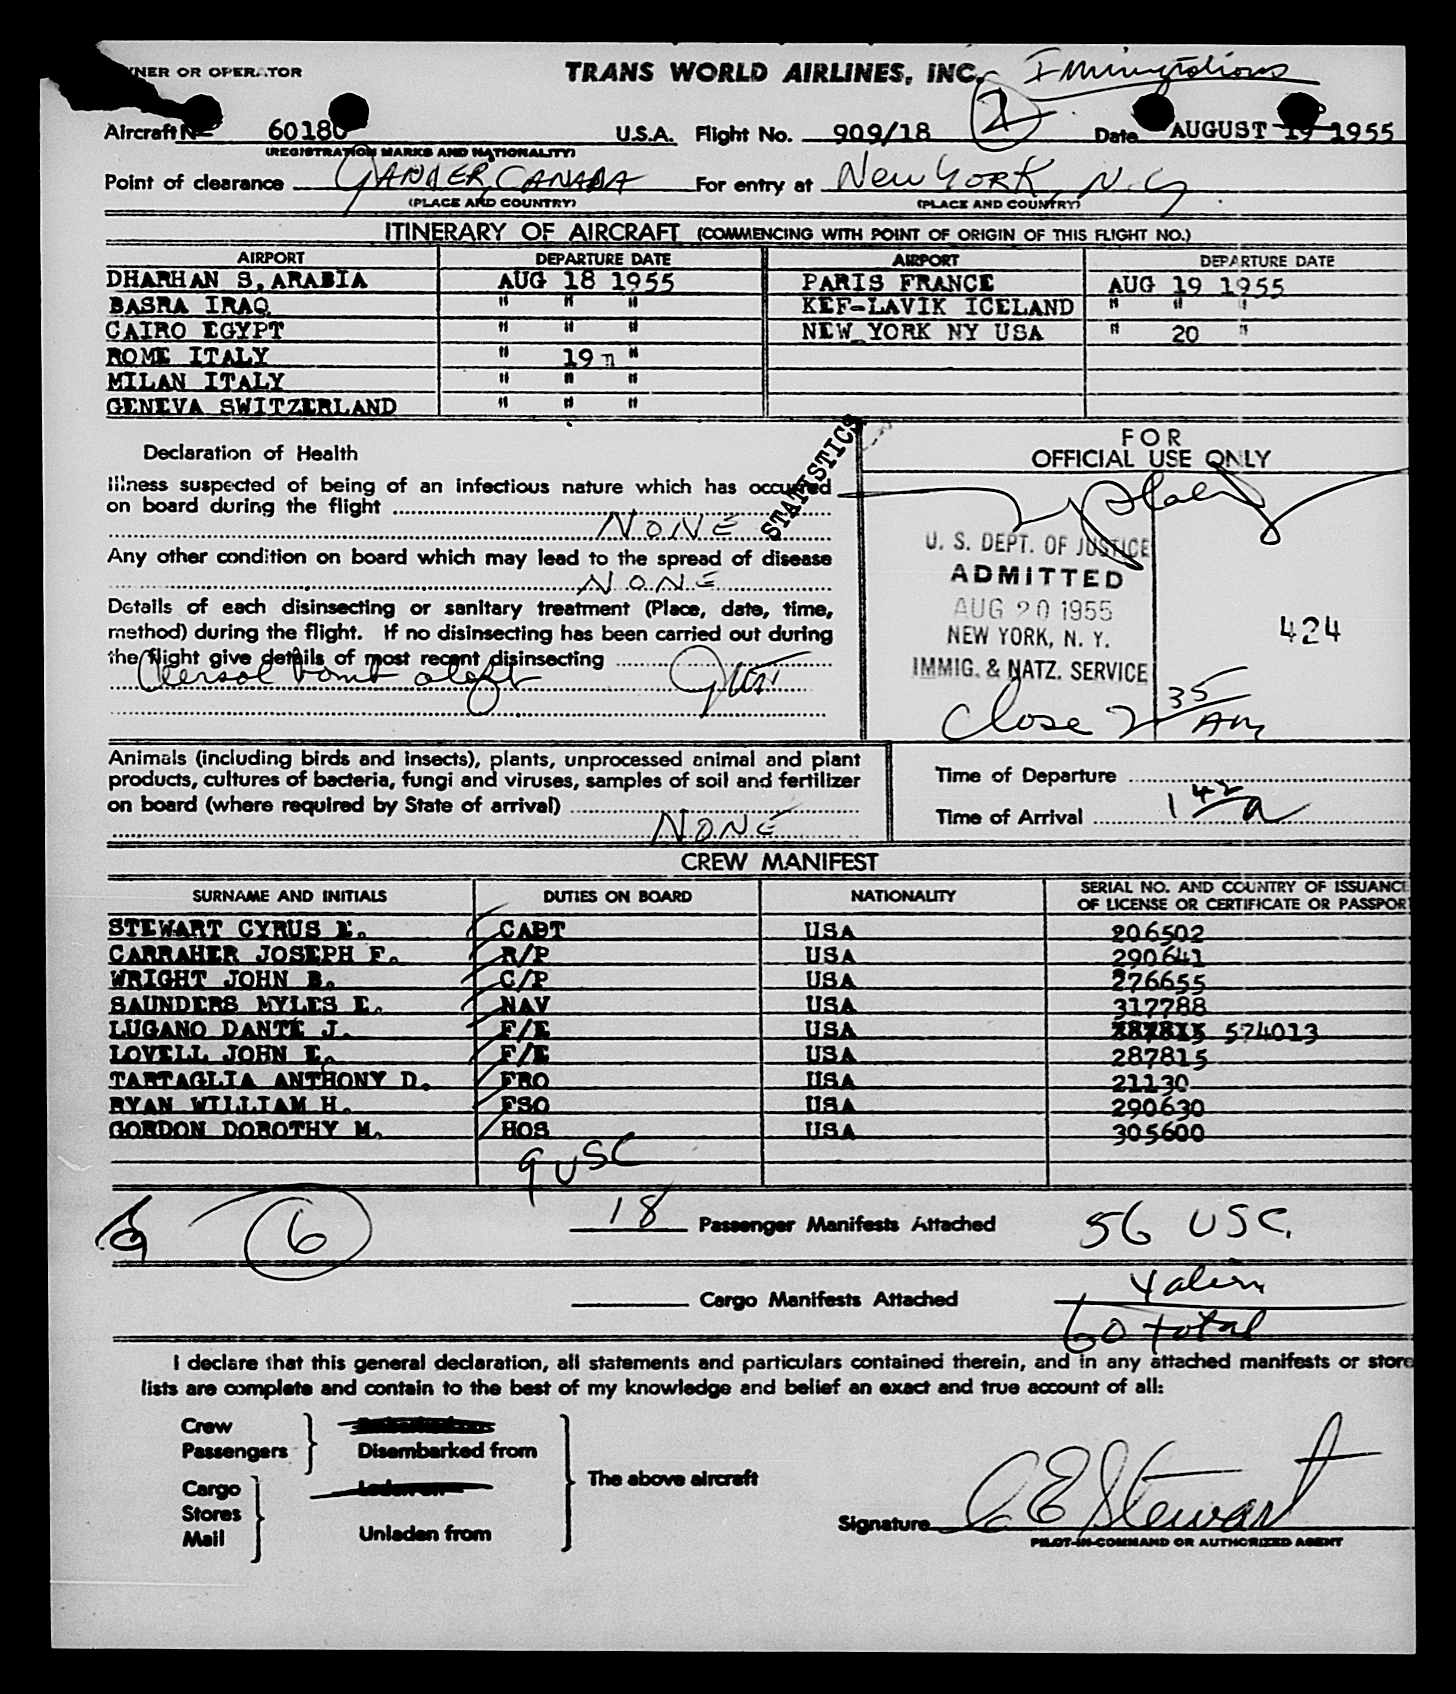 OWNER OR OPERATOR TRANS WORLD AIRLINES, INC. Immigrations
Aircraft N 60180 U.S.A. Flight No. 909/18 2 Date AUGUST 19 1955
(REGISTRATION MARKS AND NATIONALITY)
Point of clearance GANDER, CANADA For entry at New York, N.Y
(PLACE AND COUNTRY) (PLACE AND COUNTRY)
ITINERARY OF AIRCRAFT (COMMENCING WITH POINT OF ORIGIN OF THIS FLIGHT NO.)
AIRPORT DEPARTURE DATE AIRPORT DEPARTURE DATE
DHARHAN S. ARABIA AUG 18 1955 PARIS FRANCE AUG 19 1955
BASRA IRAQ " " " KEF-LAVIK ICELAND " " "
CAIRO EGYPT " " " NEW YORK NY USA " 20 "
ROME ITALY " 19 "
MILAN ITALY " " "
GENEVA SWITZERLAND " " "
STATISTICS
Declaration of Health
Illness suspected of being of an infectious nature which has occurred
on board during the flight
NONE
Any other condition on board which may lead to the spread of disease
NONE
Details of each disinsecting or sanitary treatment (Place, date, time,
method) during the flight. If no disinsecting has been carried out during
the flight give details of most recent disinsecting
Aersol bomb aloft
FOR
OFFICIAL USE ONLY
U. S. DEPT. OF JUSTICE
ADMITTED
AUG 20 1955
NEW YORK, N. Y.
IMMIG. & NATZ. SERVICE
424
Close 2 35 AM
Animals (including birds and insects), plants, unprocessed animal and plant
products, cultures of bacteria, fungi and viruses, samples of soil and fertilizer
on board (where required by State of arrival)
NONE
Time of Departure
Time of Arrival 1 42 a
CREW MANIFEST
SURNAME AND INITIALS DUTIES ON BOARD NATIONALITY SERIAL NO. AND COUNTRY OF ISSUANCE
OF LICENSE OR CERTIFICATE OR PASSPORT
STEWART CYRUS E. CAPT USA 206502
CARRAHER JOSEPH F. R/P USA 290641
WRIGHT JOHN B. C/P USA 276655
SAUNDERS MYLES E. NAV USA 317788
LUGANO DANTE J. F/E USA 287815 574013
LOVELL JOHN E. F/E USA 287815
TARTAGLIA ANTHONY D. FRO USA 21130
RYAN WILLIAM H. FSO USA 290630
GORDON DOROTHY M. HOS USA 305600
9 USC
6 18 Passenger Manifests Attached 56 USC.
Cargo Manifests Attached 4 alien
60 total
I declare that this general declaration, all statements and particulars contained therein, and in any attached manifests or store
lists are complete and contain to the best of my knowledge and belief an exact and true account of all:
Crew
Passengers Disembarked from
Cargo Laden on The above aircraft
Stores
Mail Unladen from
Signature C E Stewart
PILOT-IN-COMMAND OR AUTHORIZED AGENT